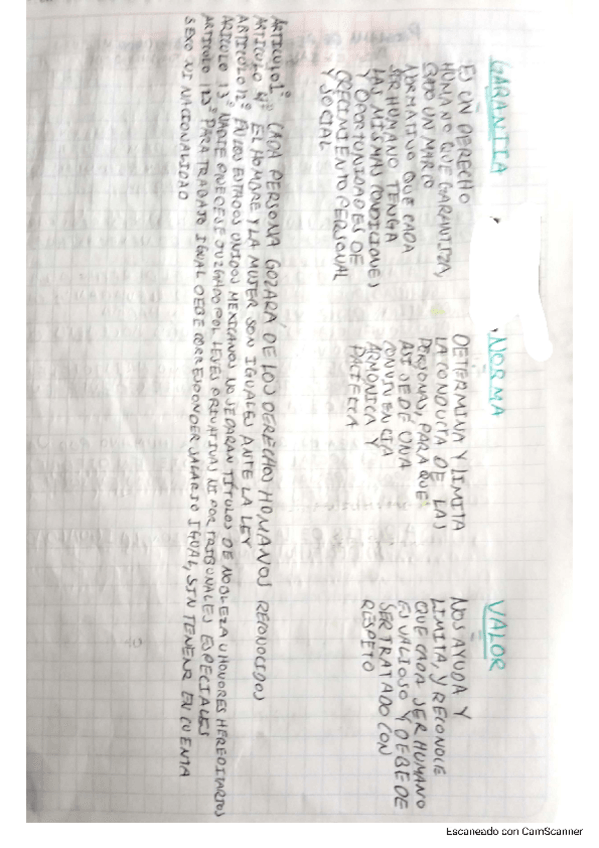 GARANTIA
ES UN DERECHO
HUMANO QUE GARANTIZA,
CREO UN MARCO
NORMATIVO QUE CADA
SER HUMANO TENGA
LAS MISMAS CONDICIONES
Y OPORTUNIDADES DE
CRECIMIENTO PERSONAL
Y SOCIAL
NORMA
DETERMINA Y LIMITA
LA CONDUCTA DE LAS
PERSONAS, PARA QUE
ASI SE DÉ UNA
CONVIVENCIA
ARMONICA Y
PACIFICA
VALOR
NOS AYUDA Y
LIMITA, Y RECONOCE
QUE CADA SER HUMANO
ES VALIOSO Y DEBE DE
SER TRATADO CON
RESPETO
ARTICULO 1° CADA PERSONA GOZARÁ DE LOS DERECHOS HUMANOS RECONOCIDOS
ARTICULO 4° EL HOMBRE Y LA MUJER SON IGUALES ANTE LA LEY
ARTICULO 12° EN LOS ESTADOS UNIDOS MEXICANOS NO SE DARAN TÍTULOS DE NOBLEZA U HONORES HEREDITARIOS
ARTICULO 13° NADIE PUEDE SE JUZGADO POR LEYES PRIVATIVAS NI POR TRIBUNALES ESPECIALES
ARTICULO 123° PARA TRABAJO IGUAL DEBE CORRESPONDER SALARIO IGUAL, SIN TENER EN CUENTA
SEXO NI NACIONALIDAD
Escaneado con CamScanner